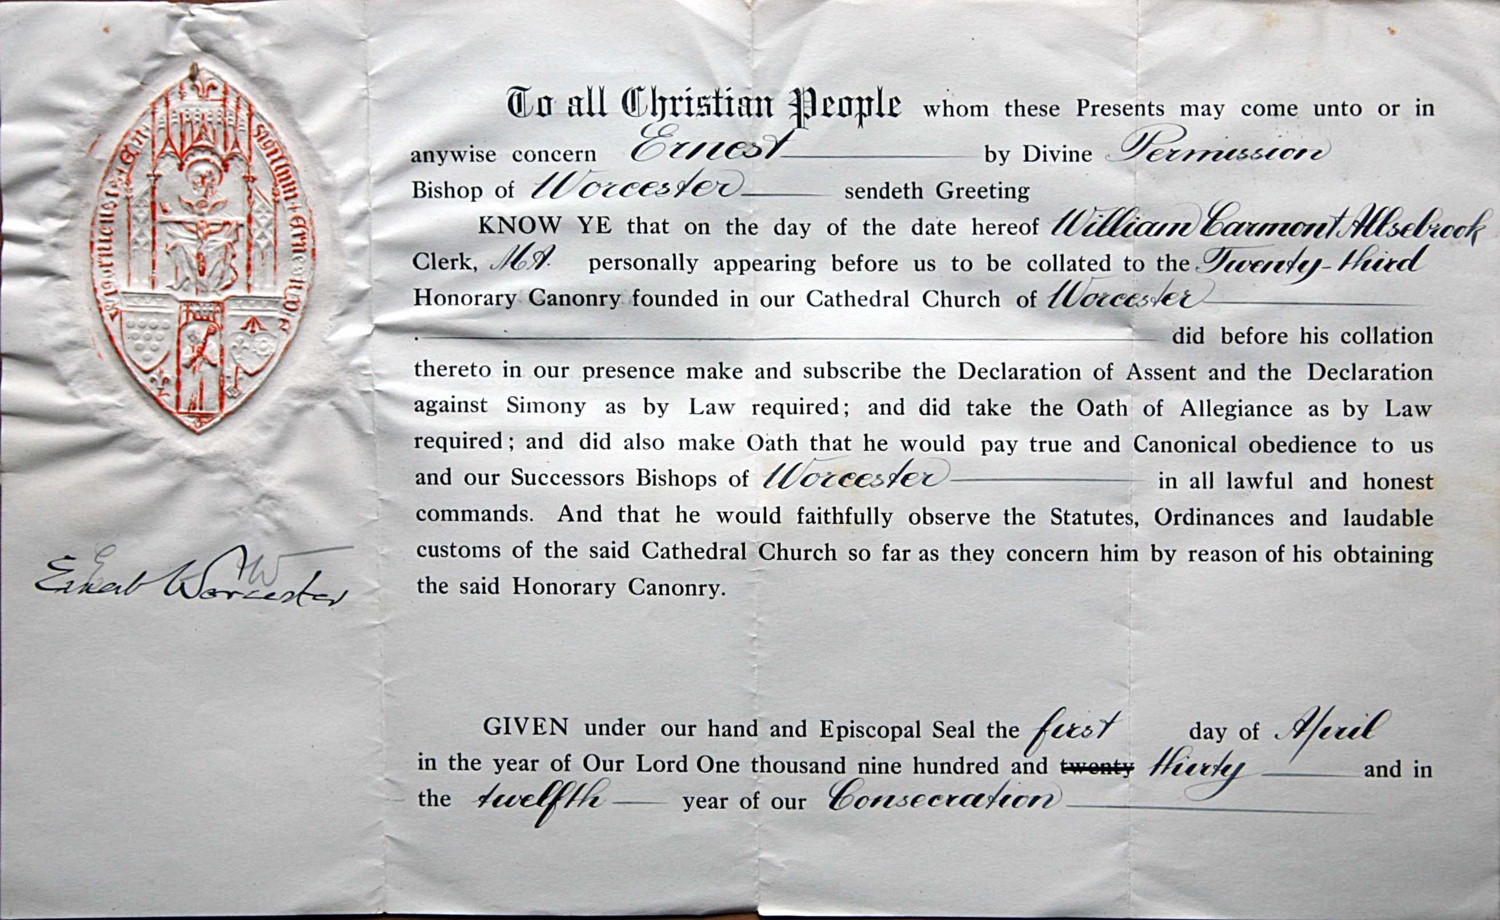 To all Christian People whom these Presents may come unto or in
anywise concern Ernest by Divine Permission
Bishop of Worcester sendeth Greeting
KNOW YE that on the day of the date hereof William Carmont Allsebrook
Clerk, MA. personally appearing before us to be collated to the Twenty-third
Honorary Canonry founded in our Cathedral Church of Worcester
did before his collation
thereto in our presence make and subscribe the Declaration of Assent and the Declaration
against Simony as by Law required; and did take the Oath of Allegiance as by Law
required; and did also make Oath that he would pay true and Canonical obedience to us
and our Successors Bishops of Worcester in all lawful and honest
commands. And that he would faithfully observe the Statutes, Ordinances and laudable
customs of the said Cathedral Church so far as they concern him by reason of his obtaining
the said Honorary Canonry.
Ernest Worcester
GIVEN under our hand and Episcopal Seal the first day of April
in the year of Our Lord One thousand nine hundred and twenty thirty and in
the twelfth year of our Consecration